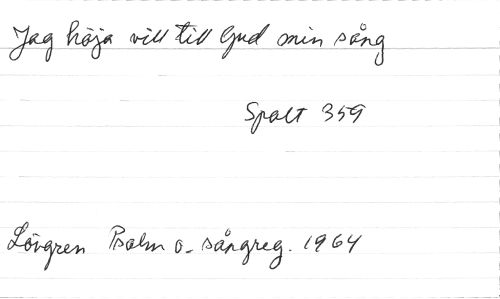 Jag höja vill till Gud min sång
Spalt 359
Lövgren Psalm o. sångreg. 1964